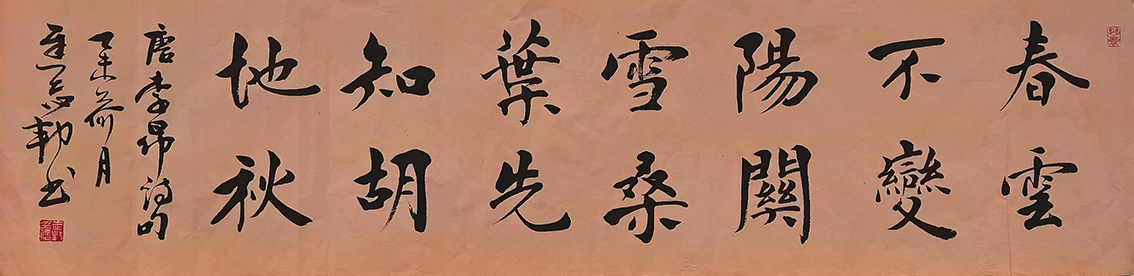 春雲
不變
陽關
雪桑
葉先
知胡
地秋
唐李昂詩句
乙未荷月
書